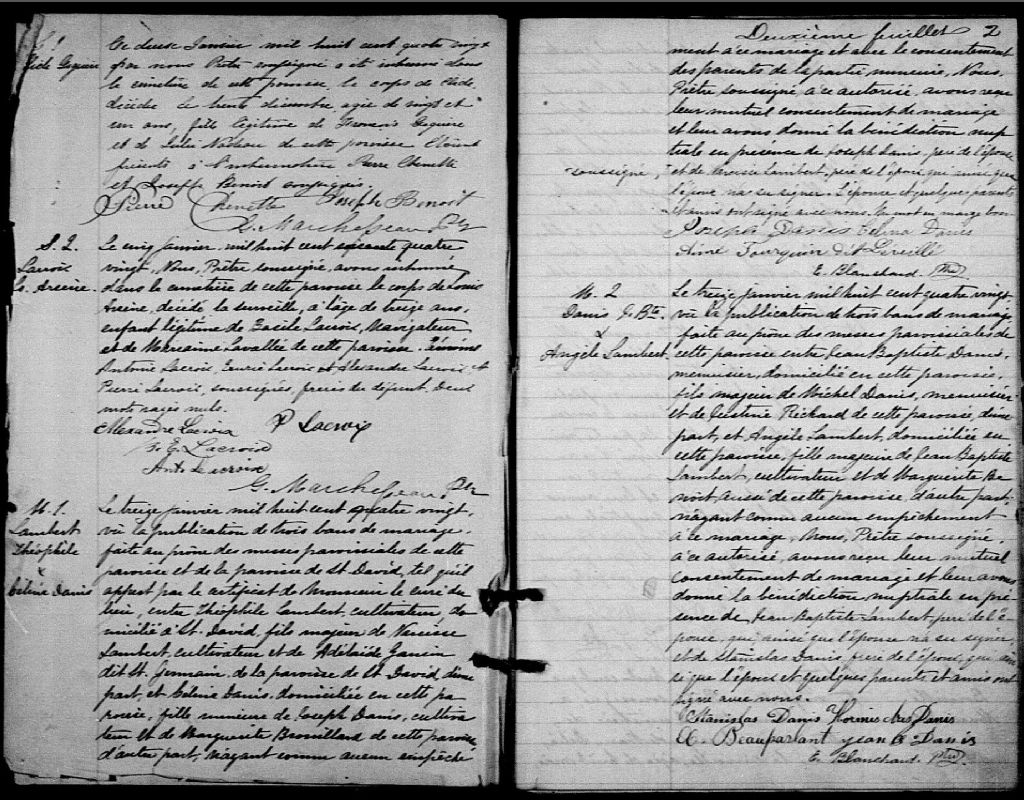 Ce deux Janvier mil huit cent quatre vingt
par nous Prêtre soussigné a été inhumé dans
le cimetière de cette paroisse le corps de
décédée le trente décembre agée de vingt et
un ans, fille légitime de
et de Julie de cette paroisse Etaient
présents à l'inhumation Pierre Chenette
et Joseph Benoit soussignés,
Pierre Chenette Joseph Benoit
G. Marchesseau Ptr
S. 2.
Lacroix
Ls. Arsène.
Le cinq janvier mil huit cent quatre
vingt, Nous, Prêtre soussigné, avons inhumé
dans le cimetière de cette paroisse le corps de Louis
Arsène, décédé, la surveille, à l'âge de treize ans,
enfant légitime de Basile Lacroix, Navigateur
et de Marianne Lavallée de cette paroisse. Témoins
Antoine Lacroix, Lacroix et Alexandre Lacroix et
Pierre Lacroix, soussignés, frères du défunt. Deux
mots rayés nuls.
Alexandre Lacroix P Lacroix
E. Lacroix
Ant. Lacroix
G. Marchesseau Ptr
M. 1.
Lambert
Théophile
&
Célina Danis
Le treize janvier mil huit cent quatre vingt,
vû la publication de trois bans de mariage,
faite au prône des messes paroissiales de cette
paroisse et de la paroisse de St David, tel qu'il
appert par le certificat de Monsieur le curé du
lieu, entre Théophile Lambert, cultivateur, do
micilié à St. David, fils majeur de Narcisse
Lambert, cultivateur et de Adélaïde
dit St. Germain, de la paroisse de St David, d'une
part, et Célina Danis, domiciliée en cette pa
roisse, fille mineure de Joseph Danis, cultiva
teur et de Marguerite Brouillard de cette paroisse,
d'autre part, n'ayant connu aucun empêche
Deuxième feuillet 2
ment à ce mariage et avec le consentement
des parents de la partie mineure, Nous,
Prêtre soussigné à ce autorisé, avons reçu
leur mutuel consentement de mariage
et leur avons donné la bénédiction nup
tiale en présence de Joseph Danis, père de l'épouse
soussigné, et de Narcisse Lambert, père de l'époux qui ainsi que
l'époux n'a su signer. L'épouse et quelques parents
et amis ont signé avec nous. Un mot en marge bon
Joseph Danis Célina Danis
Aimé
E. Blanchard. Ptre
M. 2
Danis J. Bte.
&
Angèle Lambert.
Le treize janvier mil huit cent quatre vingt,
vû la publication de trois bans de mariage
faite au prône des messes paroissiales de
cette paroisse entre Jean Baptiste Danis,
menuisier, domicilié en cette paroisse,
fils majeur de Michel Danis, menuisier
et de Justine Richard de cette paroisse, d'une
part, et Angèle Lambert, domiciliée en
cette paroisse, fille majeure de Jean Baptiste
Lambert, cultivateur et de Marguerite Be
noit aussi de cette paroisse, d'autre part,
n'ayant connu aucun empêchement
à ce mariage, Nous, Prêtre soussigné,
à ce autorisé, avons reçu leur mutuel
consentement de mariage et leur avons
donné la bénédiction nuptiale en pré
sence de Jean Baptiste Lambert, père de l'é
pouse, qui, ainsi que l'épouse n'a su signer,
et de Stanislas Danis, frère de l'époux, qui, ain
si que l'époux et quelques parents et amis ont
signé avec nous.
Stanislas Danis Danis
Beauparlant Jean B Danis
E. Blanchard. Ptre.